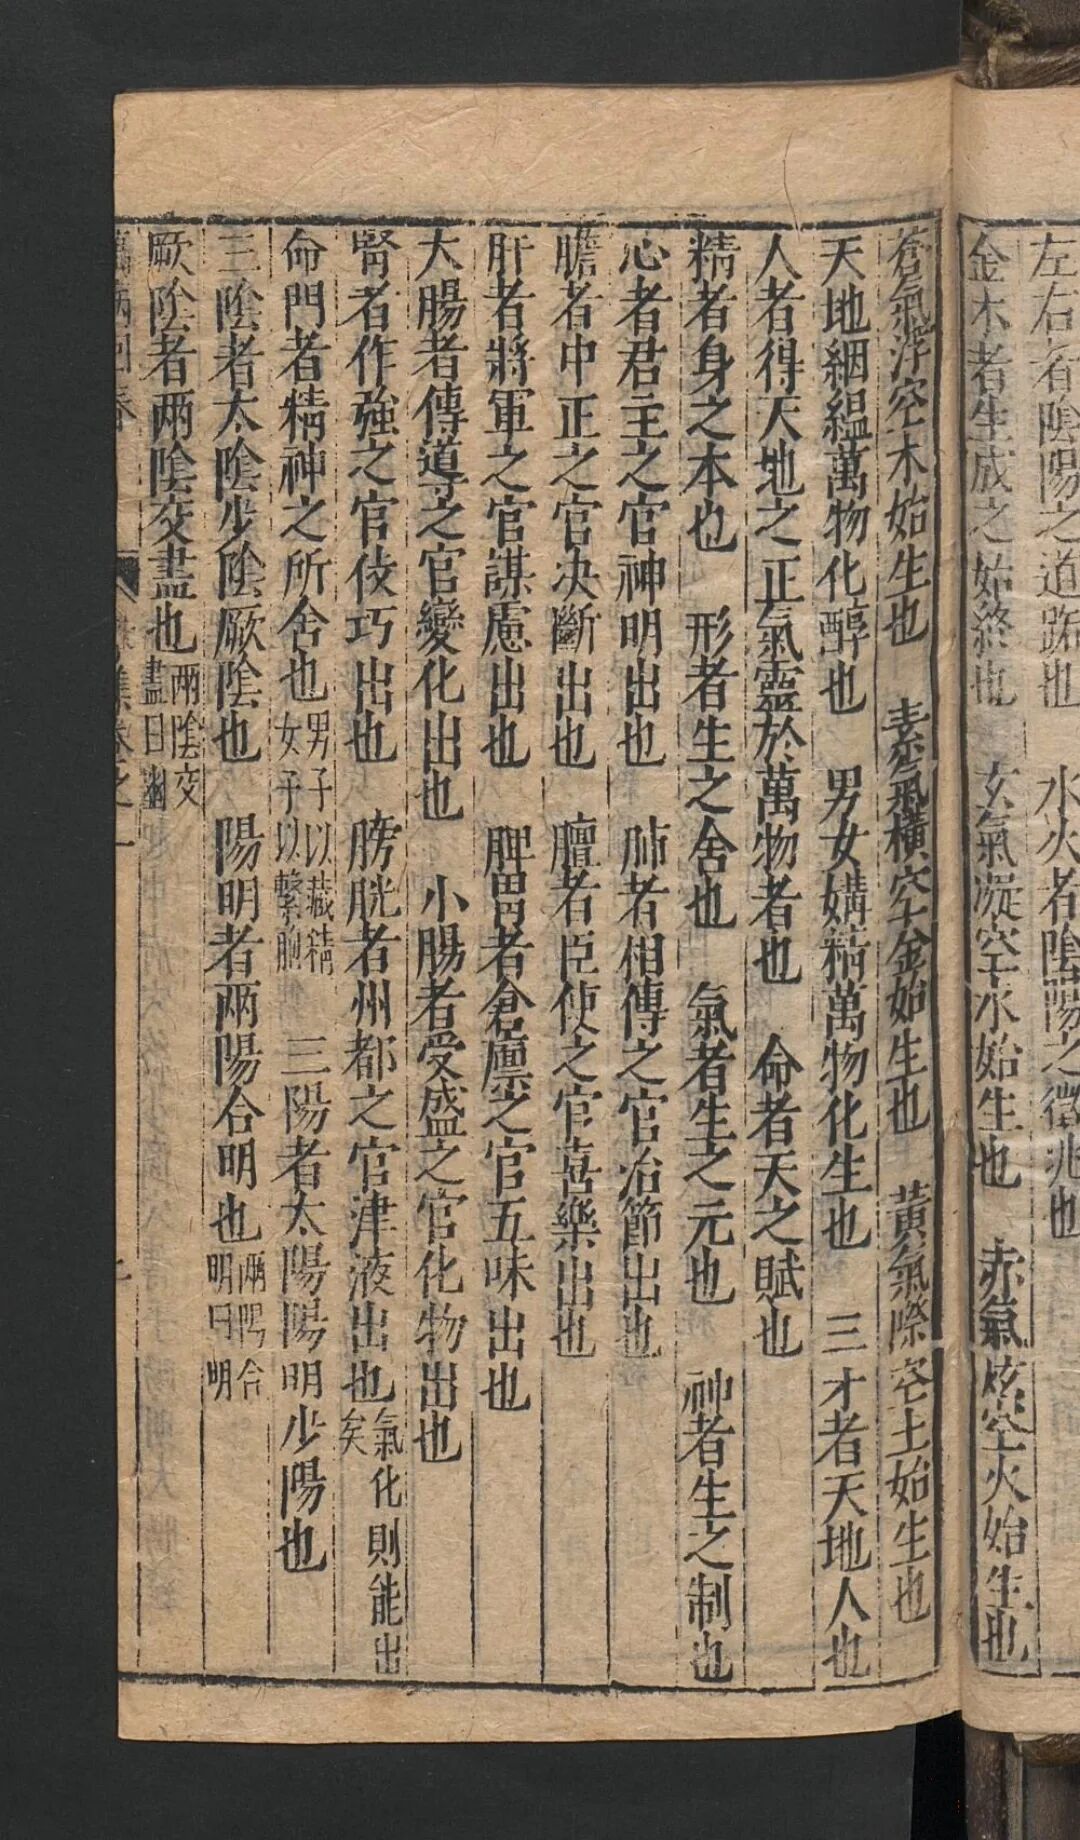 左右者陰陽之道路也　水火者陰陽之徵兆也
金木者生成之始終也　玄氣凝空水始生也　赤氣炫空火始生也
蒼氣浮空木始生也　素氣橫空金始生也　黃氣際空土始生也
天地絪縕萬物化醇也　男女媾精萬物化生也　三才者天地人也
人者得天地之正氣靈於萬物者也　命者天之賦也
精者身之本也　形者生之舍也　氣者生之元也　神者生之制也
心者君主之官神明出也　肺者相傳之官治節出也
膽者中正之官决斷出也　膻者臣使之官喜樂出也
肝者將軍之官謀慮出也　脾胃者倉廪之官五味出也
大腸者傳道之官變化出也　小腸者受盛之官化物出也
腎者作強之官伎巧出也　膀胱者州都之官津液出也氣化則能出矣
命門者精神之所舍也男子以藏精女子以繫胞　三陽者太陽陽明少陽也
三陰者太陰少陰厥陰也　陽明者兩陽合明也兩陽合明曰明
厥陰者兩陰交盡也兩陰交盡曰幽
萬病回春　卷之一